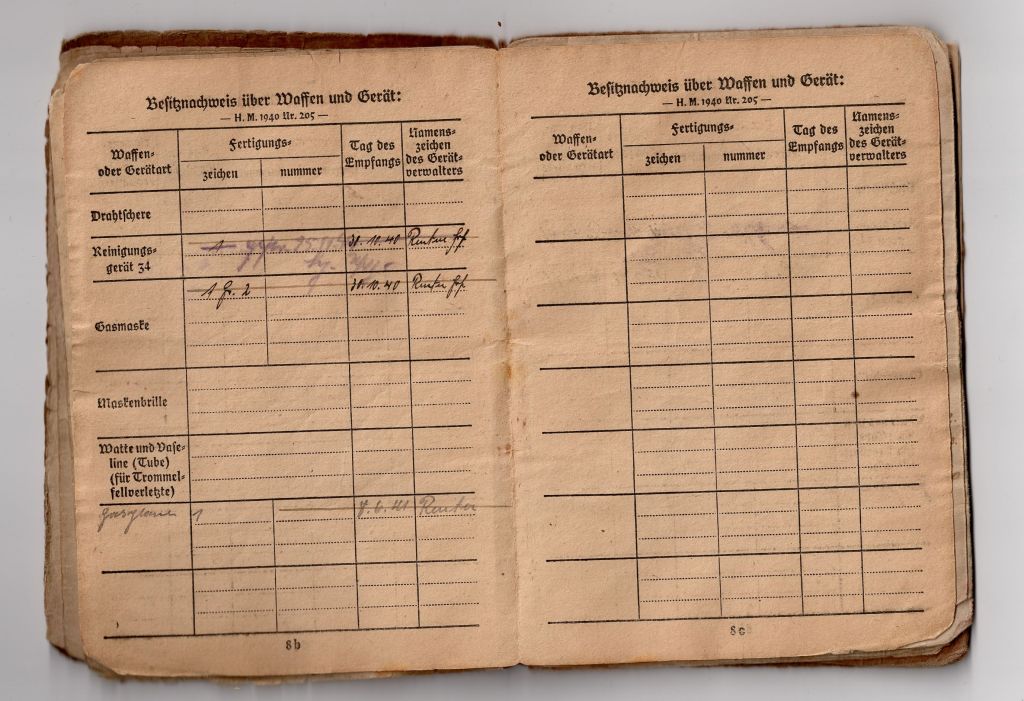 Besitznachweis über Waffen und Gerät:
— H. M. 1940 Nr. 205 —
Waffen-
oder Gerätart
Fertigungs-
zeichen
nummer
Tag des
Empfangs
Namens-
zeichen
des Gerät-
verwalters
Drahtschere
Reinigungs-
gerät 34
1
30.10.40
Gasmaske
1 Gr. 2
30.10.40
Maskenbrille
Watte und Vase-
line (Tube)
(für Trommel-
fellverletzte)
1
8b
Besitznachweis über Waffen und Gerät:
— H. M. 1940 Nr. 205 —
Waffen-
oder Gerätart
Fertigungs-
zeichen
nummer
Tag des
Empfangs
Namens-
zeichen
des Gerät-
verwalters
8c